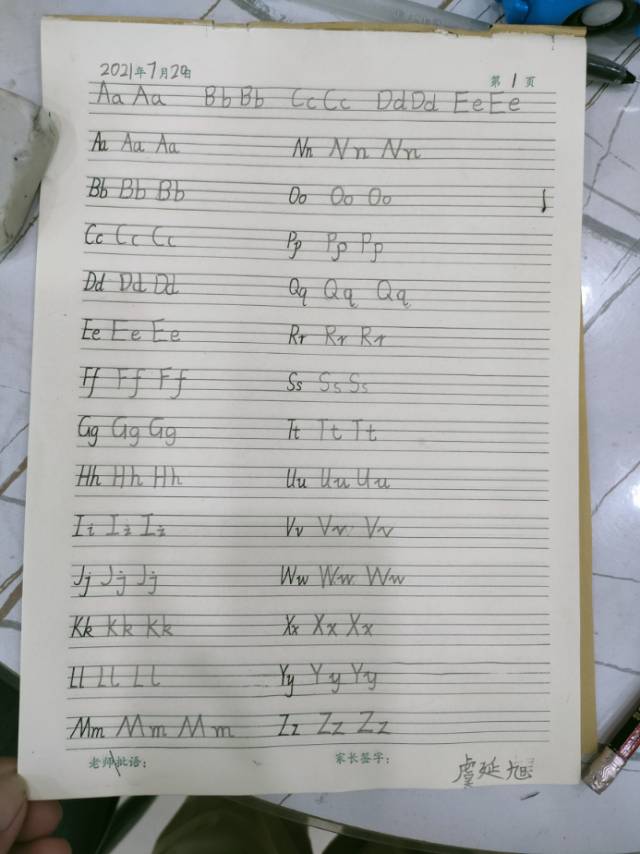 2021年7月29日 第1页
Aa Aa Bb Bb Cc Cc Dd Dd Ee Ee
Aa Aa Aa Nn Nn Nn
Bb Bb Bb Oo Oo Oo
Cc Cc Cc Pp Pp Pp
Dd Dd Dd Qq Qq Qq
Ee Ee Ee Rr Rr Rr
Ff Ff Ff Ss Ss Ss
Gg Gg Gg Tt Tt Tt
Hh Hh Hh Uu Uu Uu
Ii Ii Ii Vv Vv Vv
Jj Jj Jj Ww Ww Ww
Kk Kk Kk Xx Xx Xx
Ll Ll Ll Yy Yy Yy
Mm Mm Mm Zz Zz Zz
老师批语: 家长签字: 虞延旭